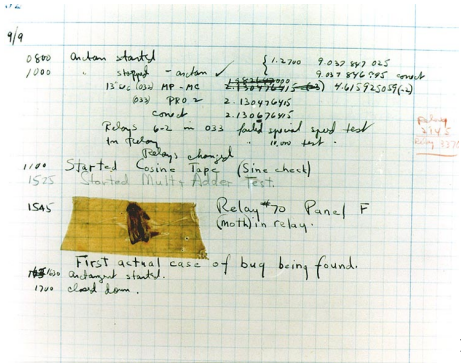 9/9
0800 Antan started
1000 " stopped - antan ✓ { 1.2700 9.037 847 025
9.037 846 995 correct
13"uc (032) MP - MC 2.130476415 (-3) 4.615925059(-2)
(033) PRO 2 2.130476415
correct 2.130676415
Relays 6-2 in 033 failed special speed test
In Relay " 10.000 test .
Relay
2145
Relay 3370
Relays changed
1100 Started Cosine Tape (Sine check)
1525 Started Mult+ Adder Test.
1545 Relay #70 Panel F
(Moth) in relay.
First actual case of bug being found.
1630 antangent started.
1700 closed down.